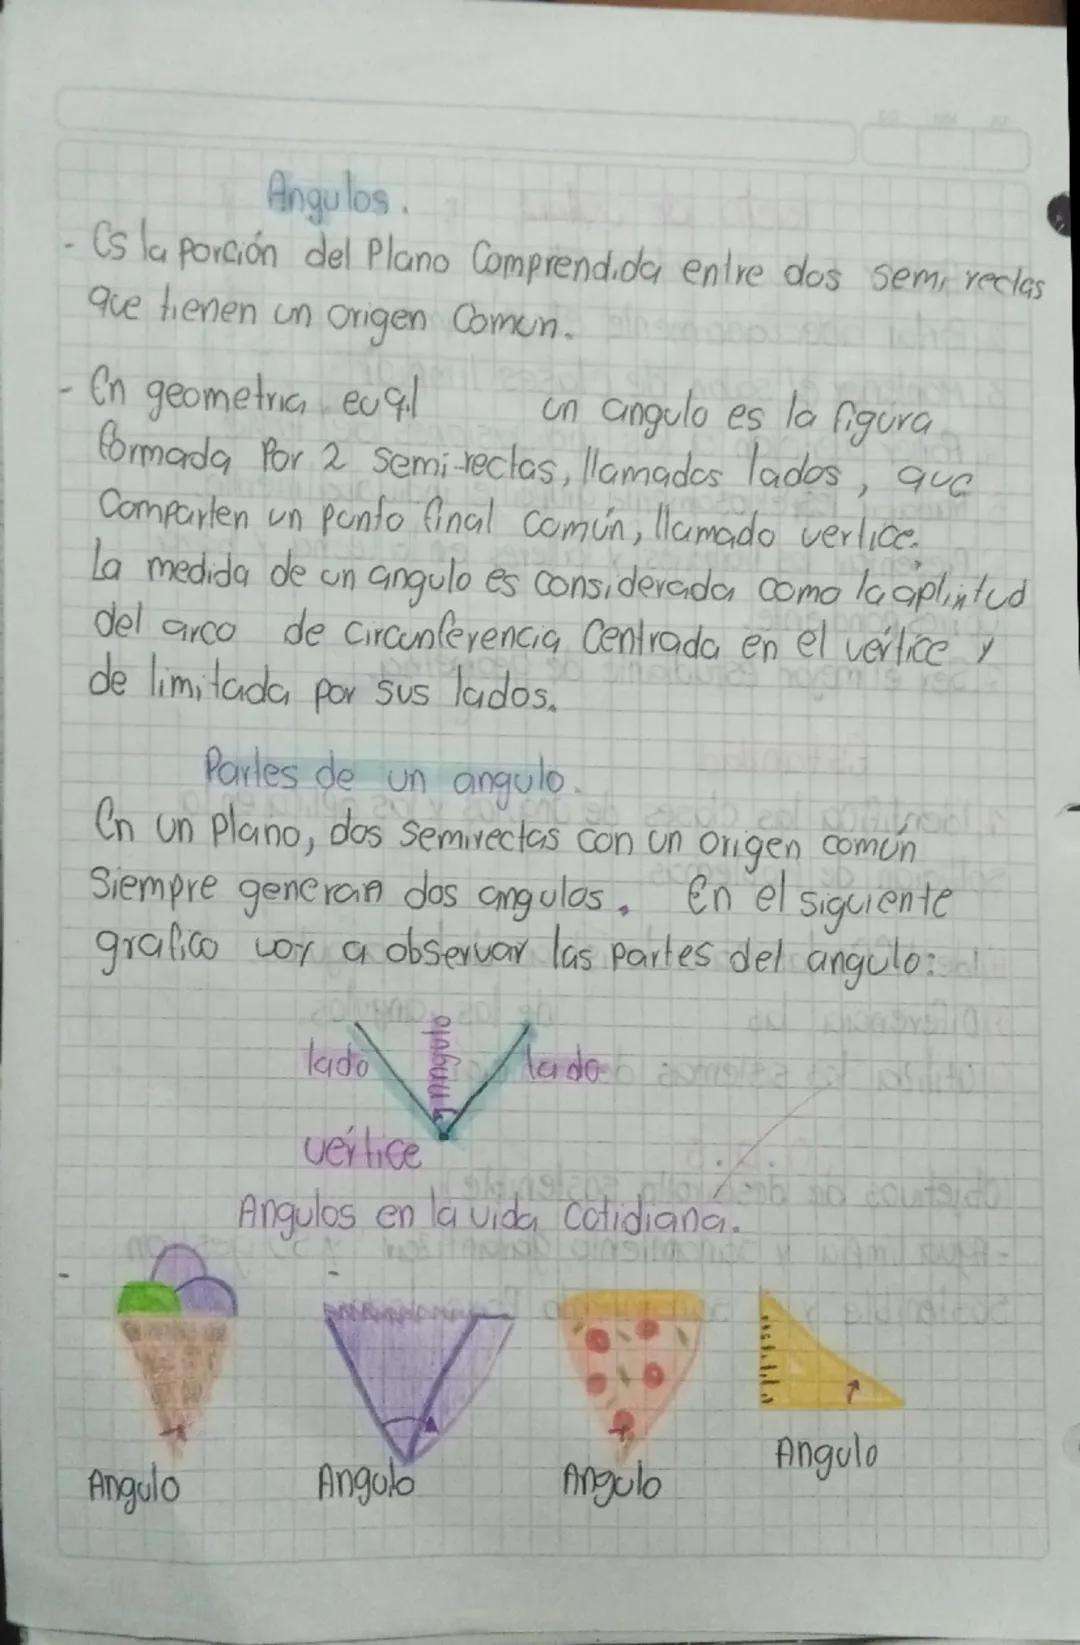 Angulos.
- Es la porción del Plano Comprendida entre dos semi rectas
que tienen un origen Comun.
- En geometria eugil un angulo es la figura
formada Por 2 semi-rectas, llamados lados, que
Comparten un punto final común, llamado vertice.
La medida de un angulo es considerada como la aplintud
del arco de circunferencia Centrada en el vértice y
de limitada por sus lados.
Partes de un angulo.
En un plano, dos semirectas con un origen común
Siempre generan dos angulos. En el siguiente
grafico voy a observar las partes del angulo:
lado
Angulo
lado
vértice
Angulos en la vida Cotidiana.
Angulo
Angulo
Angulo
Angulo